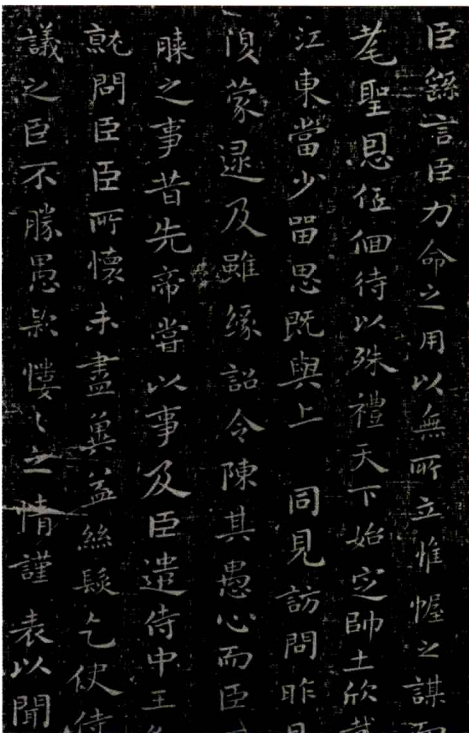 臣繇言臣力命之用以無所立惟幄之謀而
耄聖恩伍佪待以殊禮天下始定帥土欣戴
江東當少畱思既與上 同見訪問昨見
湏蒙逮及雖緣詔令陳其愚心而臣
脨之事昔先帝嘗以事及臣遣侍中王
就問臣臣所懷未盡冀益絲髮乞使侍
議之臣不勝愚款慺慺之情謹 表以聞